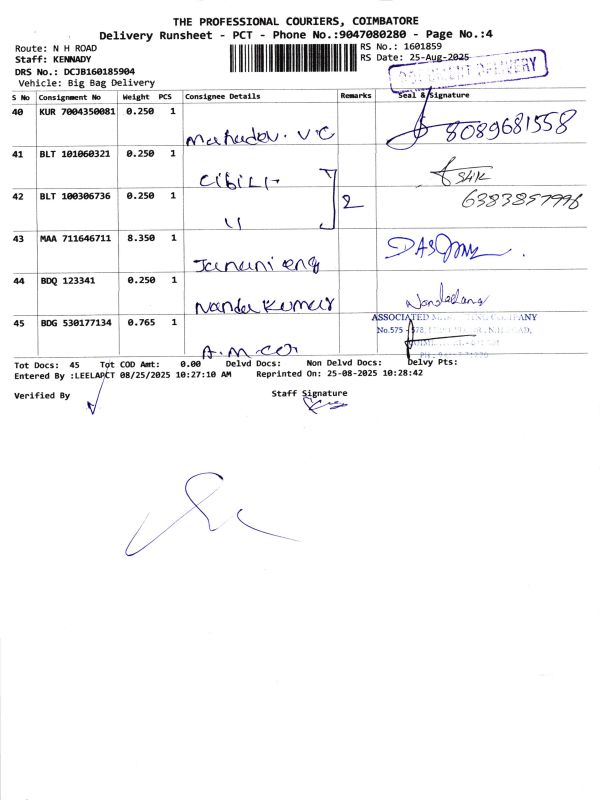 THE PROFESSIONAL COURIERS, COIMBATORE
Delivery Runsheet - PCT - Phone No.:9047080280 - Page No.:4
Route: N H ROAD
Staff: KENNADY
DRS No.: DCJB160185904
Vehicle: Big Bag Delivery
RS No.: 1601859
RS Date: 25-Aug-2025
DELIVERY
S No Consignment No Weight PCS Consignee Details Remarks Seal & Signature
40 KUR 7004350081 0.250 1 Mahadev. V.C 8089681558
41 BLT 101060321 0.250 1
42 BLT 100306736 0.250 1 " 2 6383857996
43 MAA 711646711 8.350 1 Janani eng DAS
44 BDQ 123341 0.250 1 Nanda Kumar
45 BDG 530177134 0.765 1 A.M.co
ASSOCIATED COMPANY
No.575 - 578,
Tot Docs: 45 Tot COD Amt: 0.00 Delvd Docs: Non Delvd Docs: Delvy Pts:
Entered By :LEELAPCT 08/25/2025 10:27:10 AM Reprinted On: 25-08-2025 10:28:42
Verified By Staff Signature